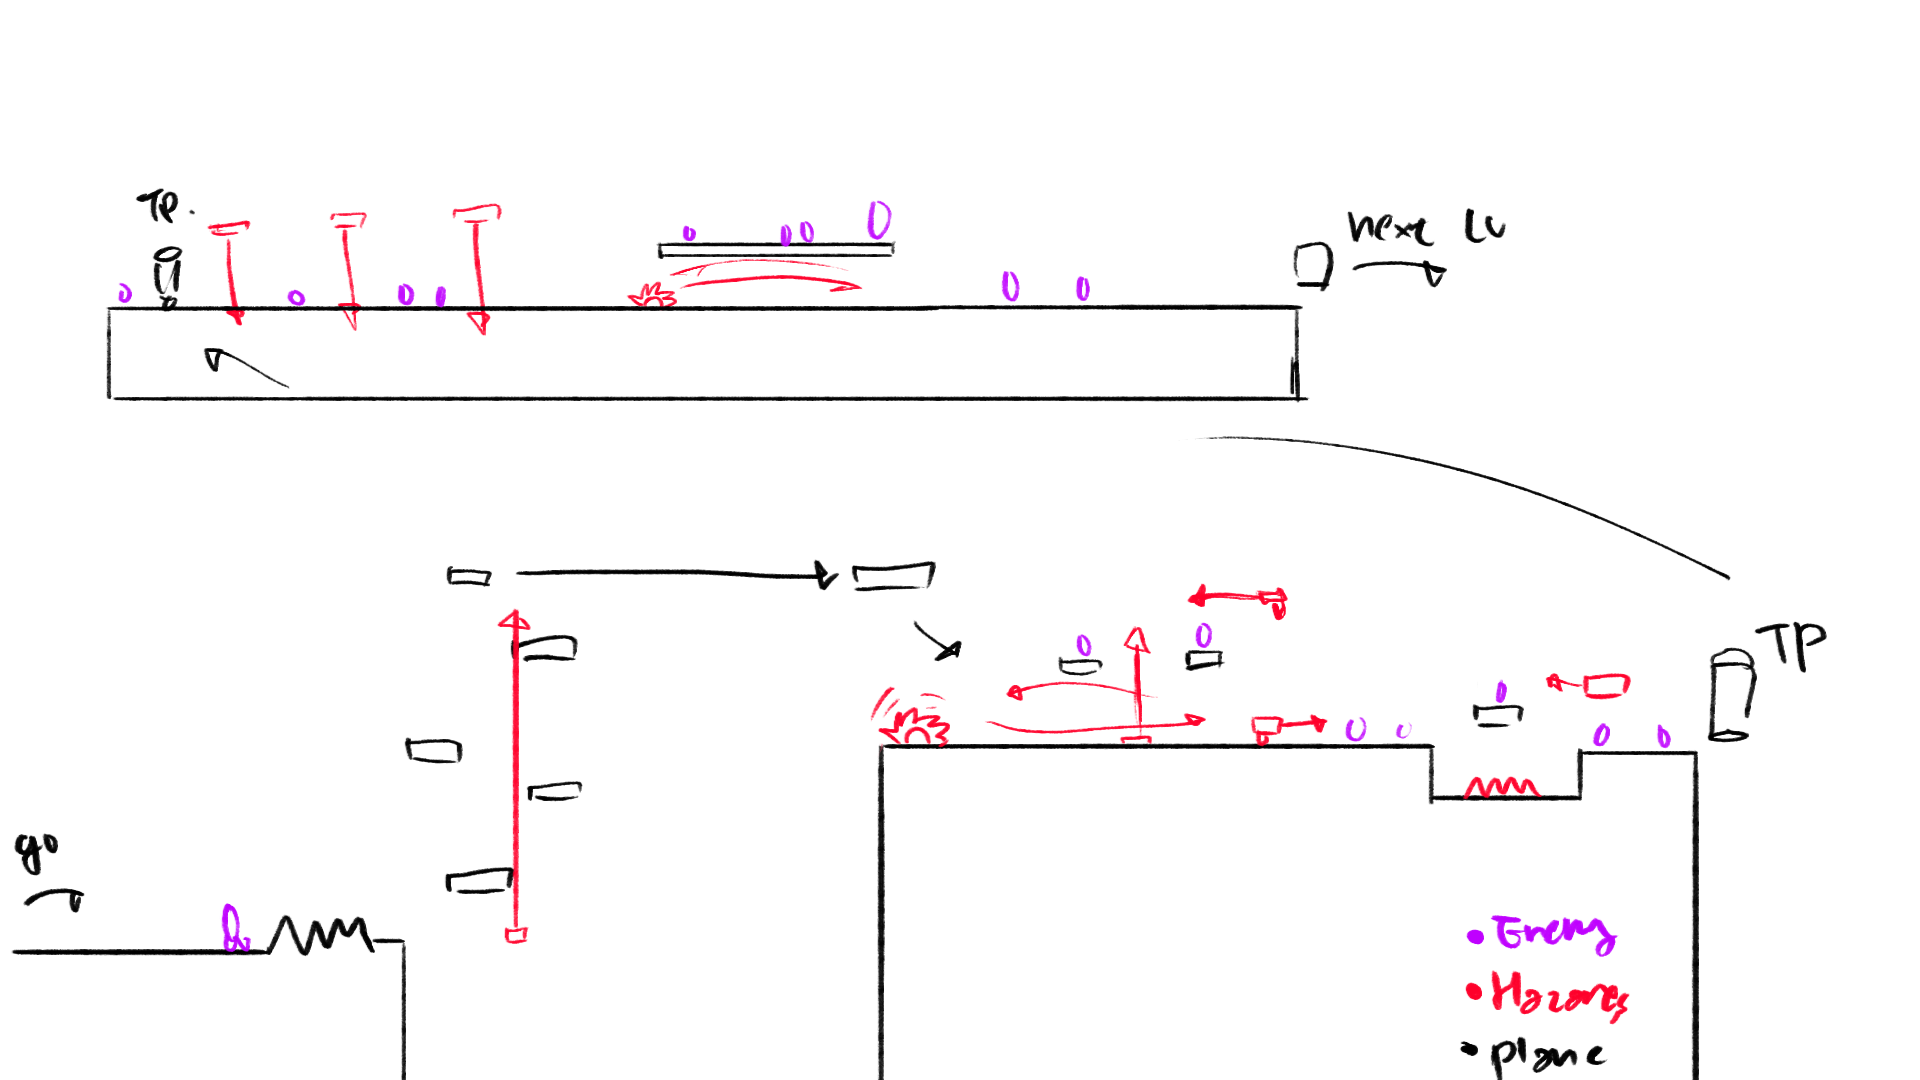 TP.
next Lv
TP
go
• Enemy
• Hazards
• plane